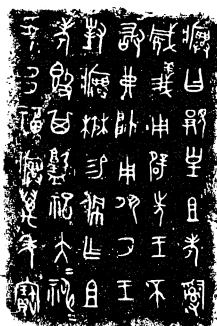 𤼈曰覭皇且考𤔲
威義用辟先王不
敢弗帥用夙夕王
對𤼈楙易佩乍且
考𣪘其祀大神=
妥多福𤼈萬年寶